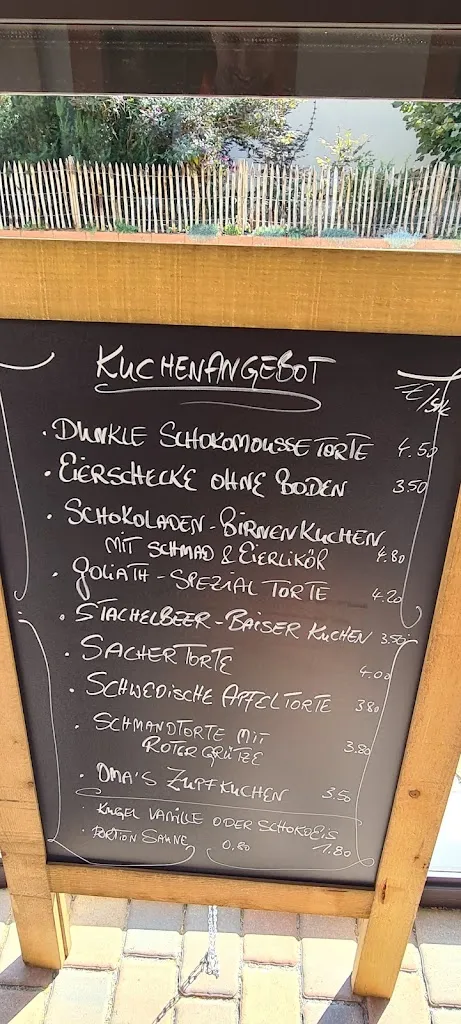 KUCHENANGEBOT
€/Stk
· DUNKLE SCHOKOMOUSSE TORTE 4.50
· EIERSCHECKE OHNE BODEN 3.50
· SCHOKOLADEN-BIRNENKUCHEN
MIT SCHMAD & EIERLIKÖR 4.80
· GOLIATH-SPEZIAL TORTE 4.20
· STACHELBEER-BAISER KUCHEN 3.50
· SACHERTORTE 4.00
· SCHWEDISCHE APFELTORTE 3.80
· SCHMANDTORTE MIT
ROTER GRÜTZE 3.80
· OMA'S ZUPFKUCHEN 3.50
· KUGEL VANILLE ODER SCHOKOEIS 1.80
· PORTION SAHNE 0.80